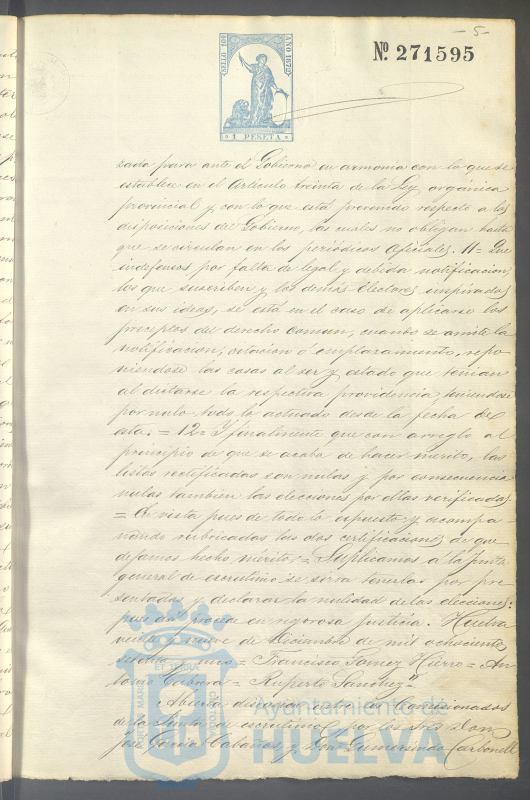 - 5 -
Nº. 271595
SELLO 10º
AÑO 1872
1 PESETA
zada para ante el Gobierno en armonia con lo que se
establece en el Articulo treinta de la Ley organica
provincial y con lo que está prevenido respecto a las
disposiciones del Gobierno, las cuales no obligan hasta
que se circulan en los periódicos oficiales. 11= Que
indefensos por falta de legal y debida notificacion,
los que suscriben y los demas Electores inspirados
en sus ideas, se está en el caso de aplicarse los
preceptos del derecho comun, cuando se omite la
notificacion, citacion ó emplazamiento, repo-
niendose las cosas al ser y estado que tenian
al dictarse la respectiva providencia, teniendose
por nulo todo lo actuado desde la fecha de
esta. = 12= Y finalmente que con arreglo al
principio de que se acaba de hacer mérito, las
listas rectificadas son nulas y por consecuencia
nulas tambien las elecciones por ellas verificadas
= En vista pues de todo lo expuesto y acompa-
ñando rubricadas las dos certificaciones de que
dejamos hecho mérito; = Suplicamos a la Junta
general de escrutinio se sirva tenerlas por pre-
sentadas y declarar la nulidad de las elecciones:
pues asi procede en rigorosa justicia. Huelva
veinte y nueve de Diciembre de mil ochocientos
setenta y uno = Francisco Gomez Hierro = An-
tonio Cabrera = Ruperto Sanchez"
Abierta discusion entre los Comisionados
de la Junta de escrutinio, por los Sres Don
José Garcia Cabañas y Don Gumersindo Carbonell
PORTUS MARIS
ET TERRÆ
CUSTODIA
Ayuntamiento de
HUELVA